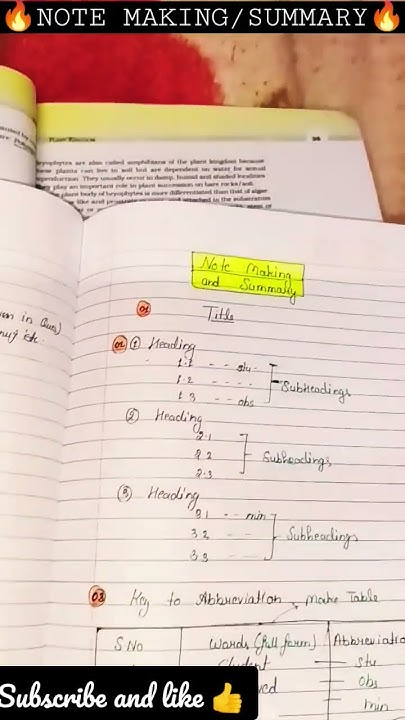 🔥NOTE MAKING/SUMMARY🔥
PLANT KINGDOM
Bryophytes are also called amphibians of the plant kingdom because
these plants can live in soil but are dependent on water for sexual
reproduction. They usually occur in damp, humid and shaded localities
They play an important role in plant succession on bare rocks/soil.
plant body of bryophytes is more differentiated than that of algae
like and attached to the substratum
Note Making
and Summary
01
Title
02 ① Heading
1.1 - - stu -
1.2 - - - -
1.3 - - obs
Subheadings
② Heading
2.1
2.2
2.3
Subheadings
③ Heading
3.1 - - min
3.2 - -
3.3 - -
Subheadings
03 Key to Abbreviation → Make Table
S.No Words (full form) Abbreviatio
Student — stu
— obs
min
Subscribe and like 👍